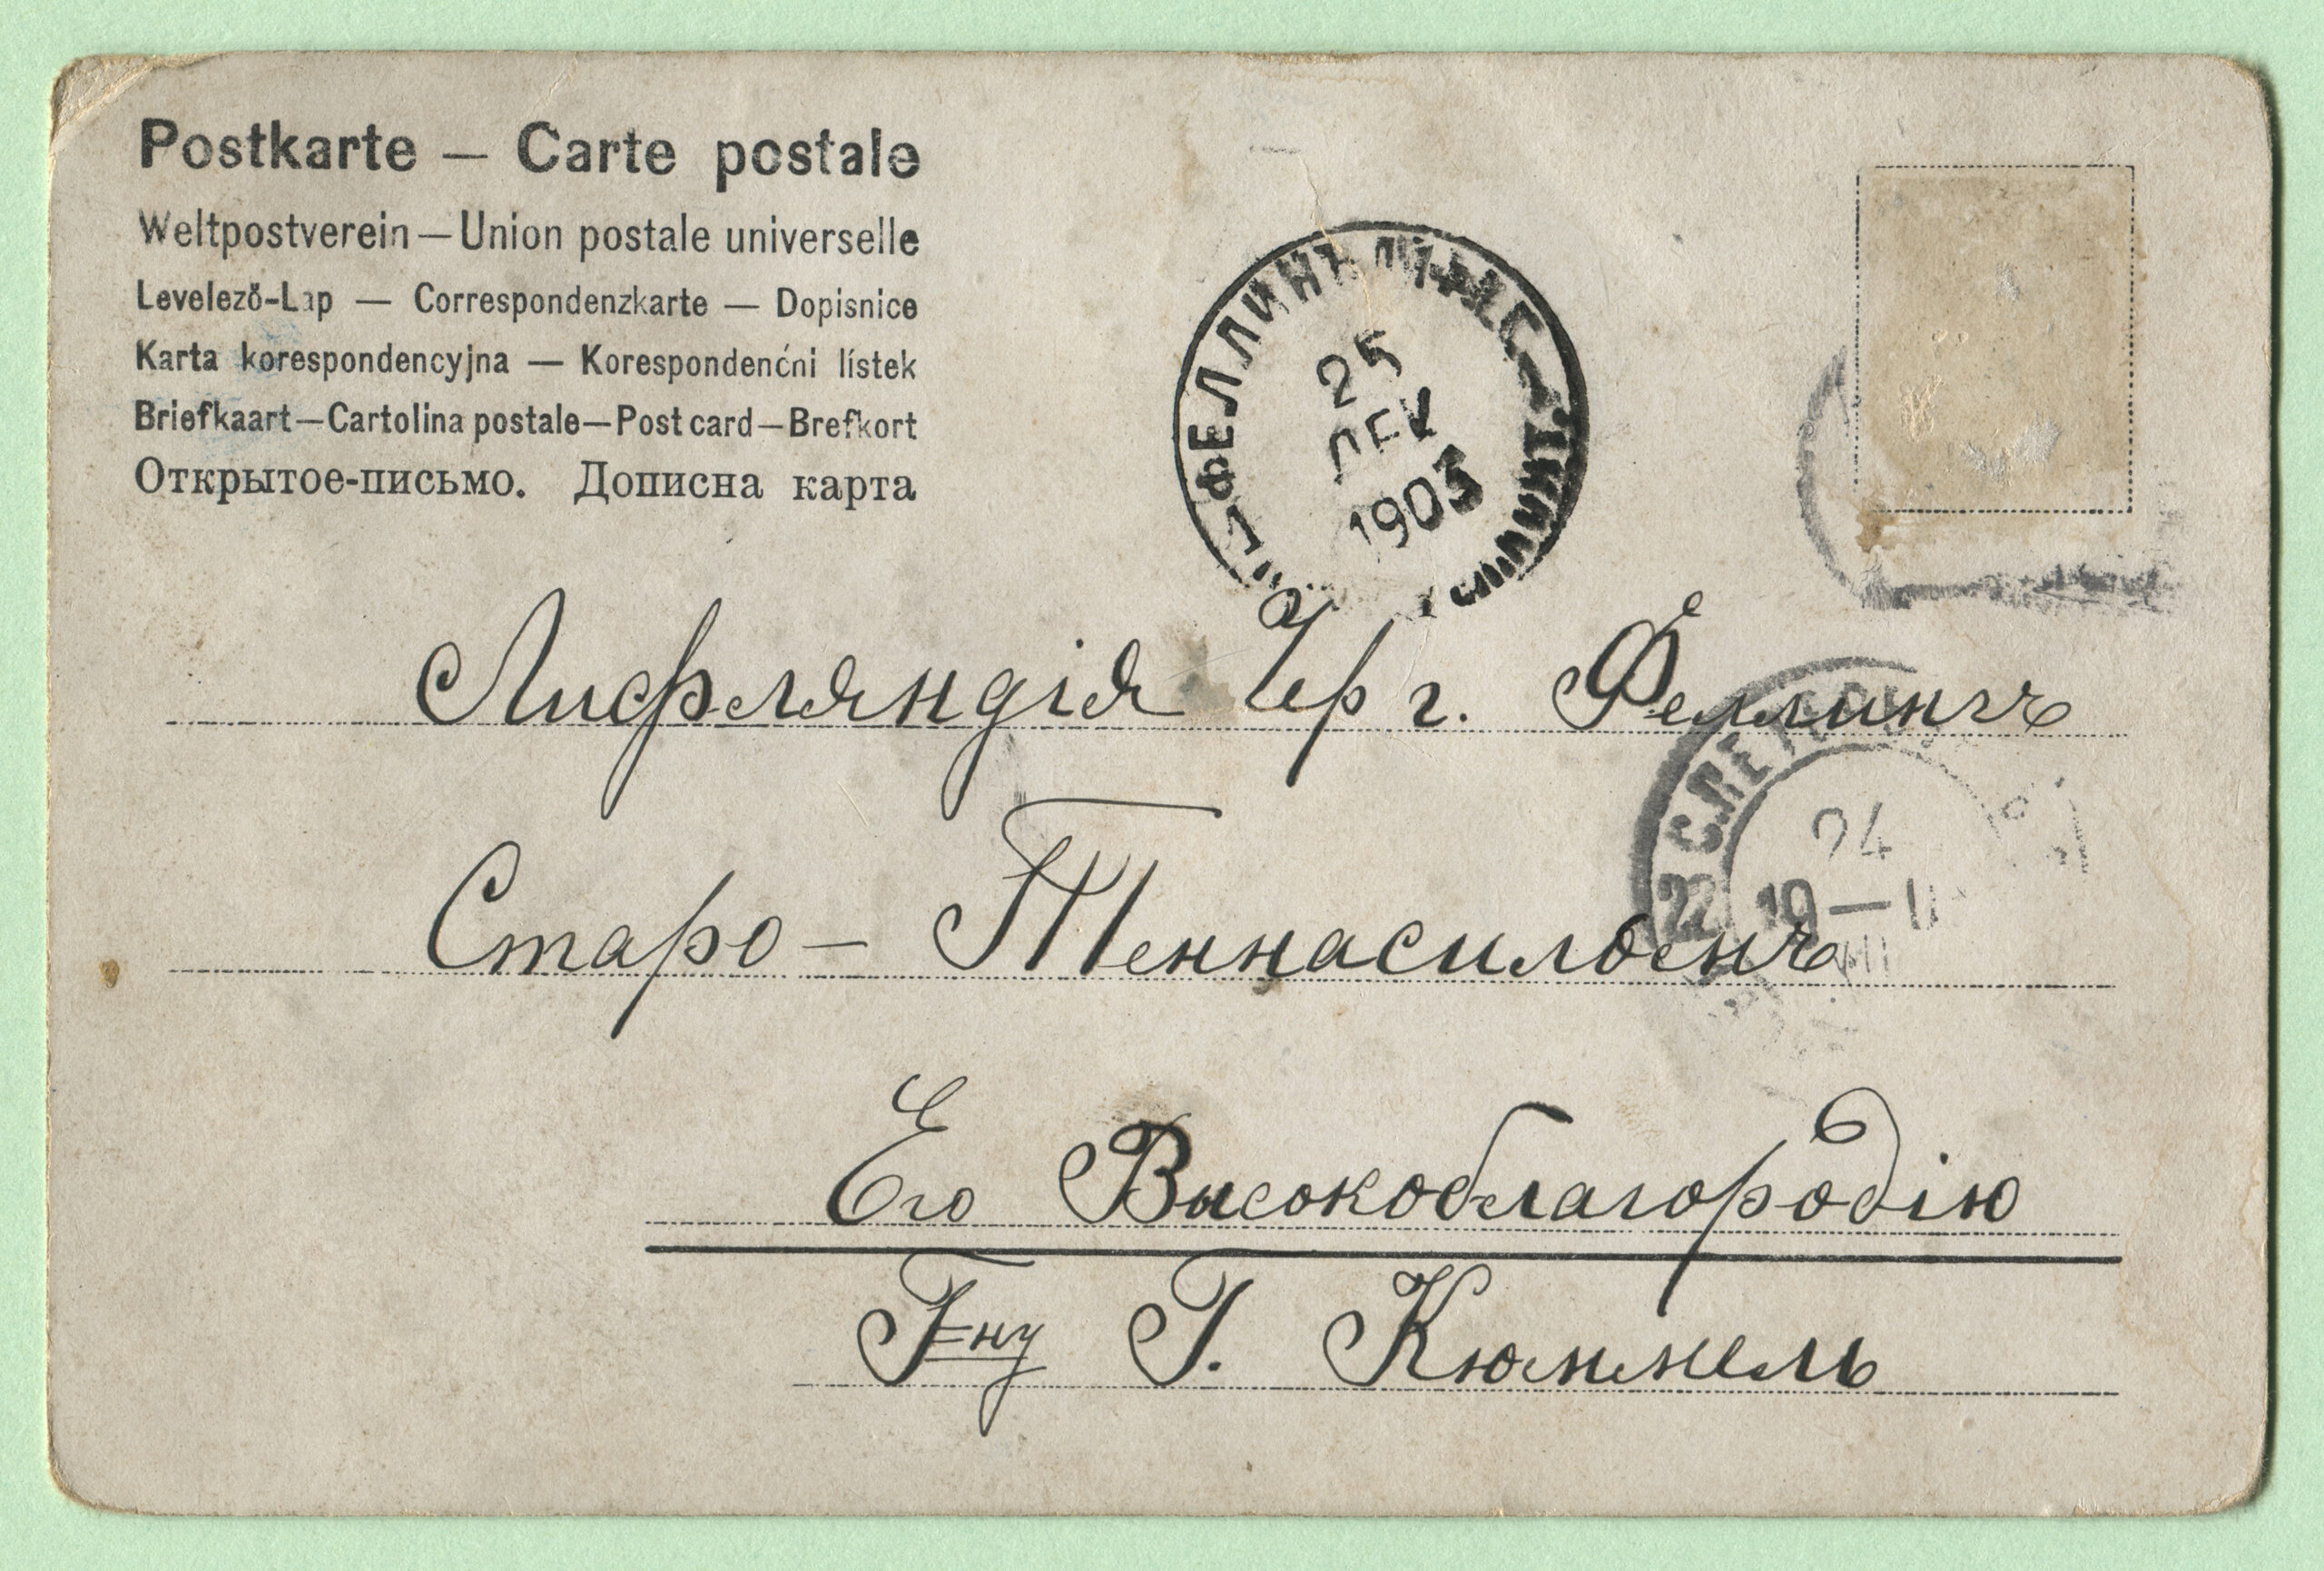 Postkarte — Carte postale
Weltpostverein — Union postale universelle
Levelező-Lap — Correspondenzkarte — Dopisnice
Karta korespondencyjna — Korespondenćni lístek
Briefkaart — Cartolina postale — Post card — Brefkort
Открытое-письмо. Дописна карта
ФЕЛЛИНЪ
25
ДЕК
1903
Лифляндія Чр г. Феллинъ
24
22 19
Старо-Теннасильмъ
Его Высокоблагородію
Гну Г. Кюммель